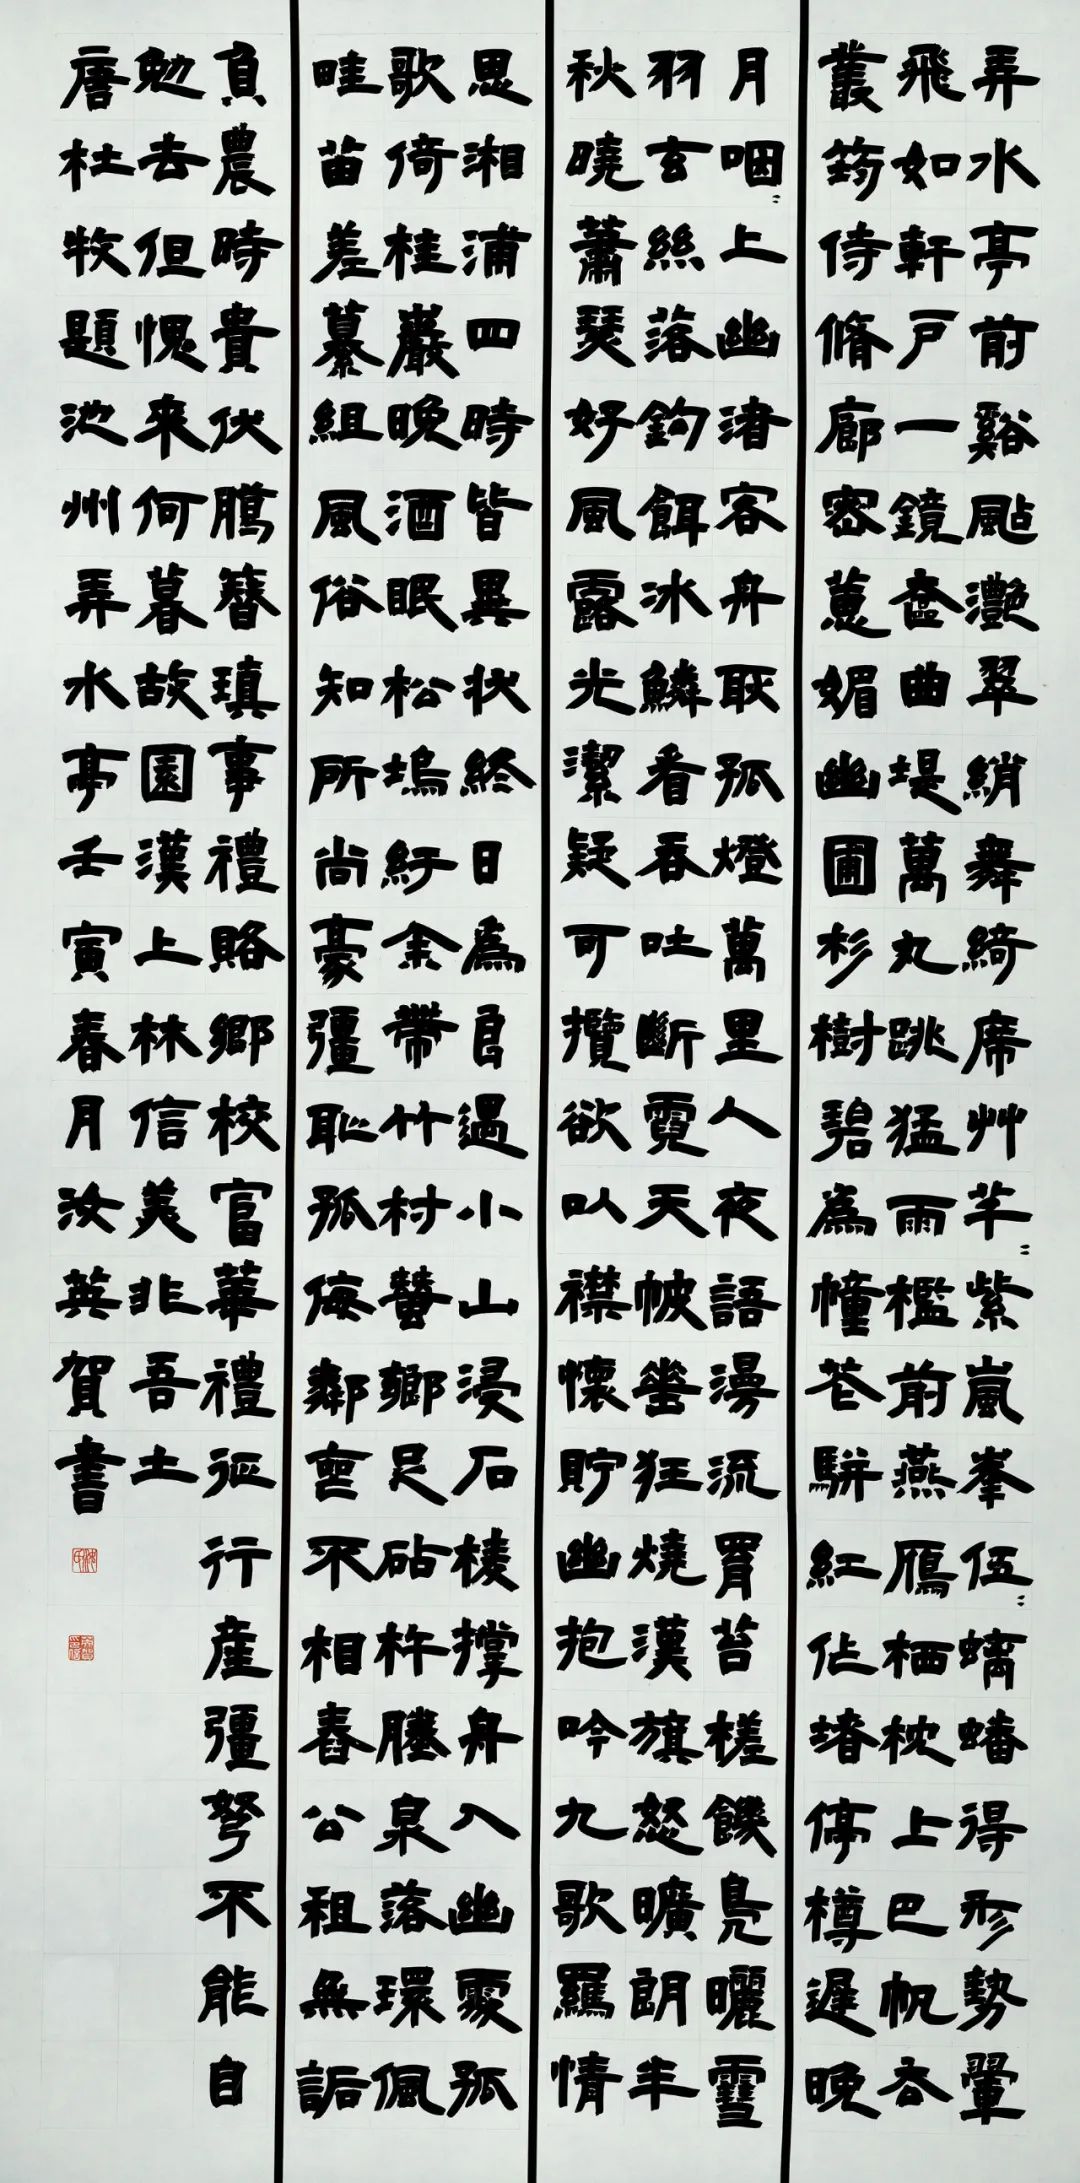 弄水亭前谿颭灧翠綃舞綺席艸芊〻紫嵐峯伍〻螭蟠得形勢翬
飛如軒戶一鏡奩曲堤萬丸跳猛雨檻前燕鴈栖枕上巴帆去
叢筠侍脩廊密蕙媚幽圃杉樹碧為幢花駢紅作堵停樽遲晚
月咽〻上幽渚客舟耿孤燈萬里人夜語漫流罥苔槎饑鳧曬雪
羽玄絲落鉤餌冰鱗看吞吐斷霓天帔垂狂燒漢旗怒曠朗半
秋曉蕭瑟好風露光潔疑可攬欲以襟懷貯幽抱吟九歌羈情
思湘浦四時皆異狀終日為良遇小山浸石棱撐舟入幽處孤
歌倚桂巖晚酒眠松塢紆余帶竹村蠶鄉足砧杵塍泉落環佩
畦苗差纂組風俗知所尚豪彊恥孤侮鄰喪不相舂公租無詬
負農時貴伏臘簪瑱事禮賂鄉校富華禮征行產彊弩不能自
勉去但愧來何暮故園漢上林信美非吾土
唐杜牧題池州弄水亭壬寅春月汝英賀書